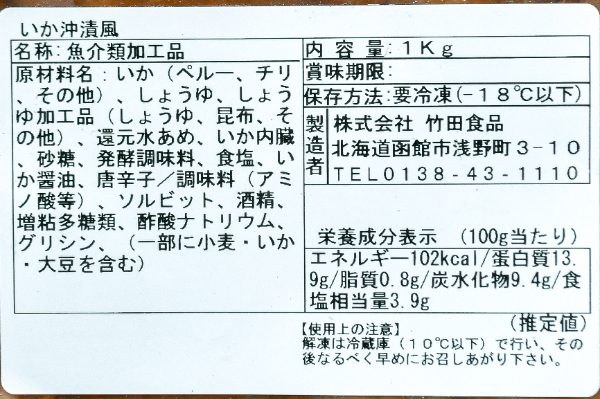 いか沖漬風
名称:魚介類加工品
原材料名:いか（ペルー、チリ
、その他）、しょうゆ、しょう
ゆ加工品（しょうゆ、昆布、そ
の他）、還元水あめ、いか内臓
、砂糖、発酵調味料、食塩、い
か醤油、唐辛子／調味料（アミ
ノ酸等）、ソルビット、酒精、
増粘多糖類、酢酸ナトリウム、
グリシン、（一部に小麦・いか
・大豆を含む）
内容量:１Ｋｇ
賞味期限:
保存方法:要冷凍(－１８℃以下)
製造者
株式会社 竹田食品
北海道函館市浅野町３－１０
ＴＥＬ０１３８－４３－１１１０
栄養成分表示 （100g当たり）
エネルギー102kcal/蛋白質13.
9g/脂質0.8g/炭水化物9.4g/食
塩相当量3.9g
（推定値）
【使用上の注意】
解凍は冷蔵庫（１０℃以下）で行い、その
後なるべく早めにお召しあがり下さい。